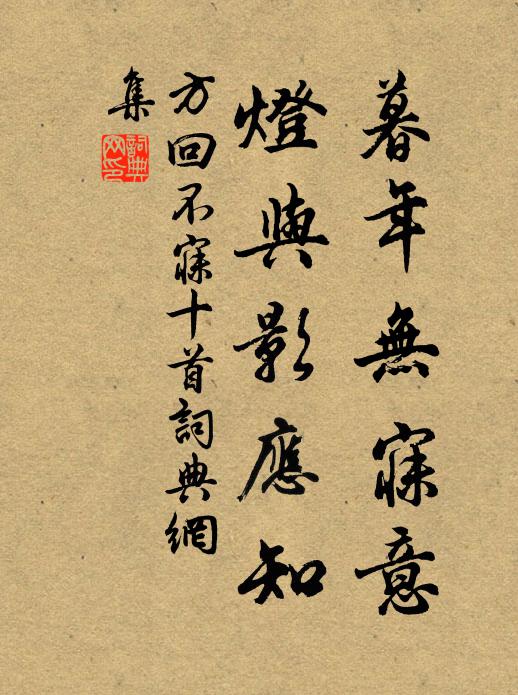 暮年無寐意
燈與影應知
方回不寐十首詞典網
集
詞典网印